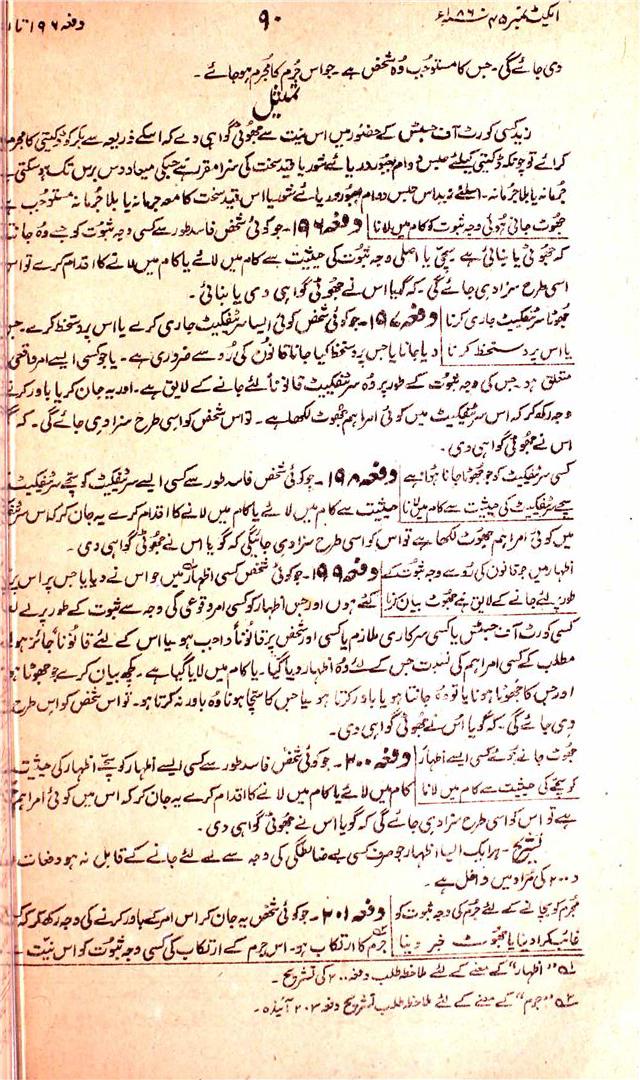 ایکٹ نمبر ۴۵ ۱۸۶۰ء ۹۰ دفعہ ۱۹۶ تا
دی جائے گی۔ جس کا مستوجب وُہ شخص ہے۔ جو اس جُرم کا مُجرم ہو جائے۔
تمثیل
زید کسی کورٹ آف جسٹس کے حضور میں اس نیت سے جھوٹی گواہی دے کہ اسکے ذریعہ سے بکر کو ڈکیتی کا مجرم
کرائے تو چونکہ ڈکیتی کیلئے حبس دوام بعبور دریائے شور یا قید سخت کی سزا مقرر ہے جسکی میعاد دس برس تک ہو سکتی
جُرمانہ یا بلا جُرمانہ۔ اسلئے زید اس حبس دوام بعبور دریائے شور یا اس قید سخت کا معہ جرمانہ یا بلا جُرمانہ مستوجب ہے
جھوٹ جانی ہوئی وجہ ثبوت کو کام میں لانا دفعہ ۱۹۶۔ جو کوئی شخص فاسد طور سے کسی وجہ ثبوت کو جسے وُہ جانتا
کہ جھوٹی یا بنائی ہے سچی یا اصلی وجہ ثبوت کی حیثیت سے کام میں لائے یا کام میں لانے کا اقدام کرے تو اس
اسی طرح سزا دی جائے گی۔ کہ گویا اس نے جھوٹی گواہی دی یا بنائی۔
جھوٹا سرٹیفکیٹ جاری کرنا دفعہ ۱۹۷۔ جو کوئی شخص کوئی ایسا سرٹیفکیٹ جاری کرے یا اس پر دستخط کرے۔ جس
یا اس پر دستخط کرنا دیا جانا یا جس پر دستخط کیا جانا قانون کی رُو سے ضروری ہے۔ یا جو کسی ایسے امر واقعی
متعلق ہو۔ جس کی وجہ ثبوت کے طور پر وُہ سرٹیفکیٹ قانوناً لئے جانے کے لایق ہے۔ اور یہ جان کر یا باور کرنے
وجہ رکھ کر کہ اس سرٹیفکیٹ میں کوئی امر اہم جھوٹ لکھا ہے۔ تو اس شخص کو اسی طرح سزا دی جائے گی۔ کہ
اس نے جھوٹی گواہی دی۔
کسی سرٹیفکیٹ کو جو جھوٹا جانا ہوا ہے دفعہ ۱۹۸۔ جو کوئی شخص فاسد طور سے کسی ایسے سرٹیفکیٹ کو سچے سرٹیفکیٹ
سچے سرٹیفکیٹ کی حیثیت سے کام میں لانا حیثیت سے کام میں لائے یا کام میں لانے کا اقدام کرے یہ جان کر کہ اس
میں کوئی امر اہم جھوٹ لکھا ہے تو اس کو اسی طرح سزا دی جائیگی کہ گویا اس نے جھوٹی گواہی دی۔
اظہار میں جو قانون کی رُو سے وجہ ثبوت کے دفعہ ۱۹۹۔ جو کوئی شخص کسی اظہار میں جو اس نے دیا یا جس پر اس
طور پر لئے جانے کے لایق ہے جھوٹ بیان کرنا کئے ہوں اور جس اظہار کو کسی امر وقوعی کی وجہ سے ثبوت کے طور پر لے
کسی کورٹ آف جسٹس یا کسی سرکاری ملازم یا کسی اور شخص پر قانوناً واجب ہو یا اس کے لئے قانوناً جائز ہو
مطلب کے کسی امر اہم کی نسبت جس کے لئے وُہ اظہار دیا گیا۔ یا کام میں لایا گیا ہے۔ کچھ بیان کرے جو جھوٹا
اور جس کا جھوٹا ہونا یا تو وہ جانتا ہو یا باور کرتا ہو یا جس کا سچا ہونا وُہ باور نہ کرتا ہو۔ تو اس شخص کو اس طرح
دی جائے گی۔ کہ گویا اس نے جھوٹی گواہی دی۔
جھوٹ جانے ہوئے کسی ایسے اظہار دفعہ ۲۰۰۔ جو کوئی شخص فاسد طور سے کسی ایسے اظہار کو سچے اظہار کی حیثیت
کو سچے کی حیثیت سے کام میں لانا کام میں لائے یا کام میں لانے کا اقدام کرے یہ جان کر کہ اس میں کوئی امر اہم
ہے تو اس کو اسی طرح سزا دی جائے گی کہ گویا اس نے جھوٹی گواہی دی۔
تشریح۔ ہر ایک ایسا اظہار جو صرف کسی بے ضابطگی کی وجہ سے لئے جانے کے قابل نہ ہو دفعات
و ۲۰۰ کی مُراد میں داخل ہے۔
مُجرم کو بچانے کے لئے جُرم کی وجہ ثبوت کو دفعہ ۲۰۱۔ جو کوئی شخص یہ جان کر اس امر کے باور کرنے کی وجہ رکھ کر کہ
غائب کرا دینا یا جھوٹ خبر دینا جُرم کا ارتکاب ہو۔ اس جُرم کے ارتکاب کی کسی وجہ ثبوت کو اس نیت
۱؎ "اظہار" کے معنے کے لئے ملاحظہ طلب دفعہ ۲۰۰ کی تشریح۔
۲؎ "جرم" کے معنے کے لئے ملاحظہ طلب تشریح دفعہ ۲۰۳ آئندہ۔